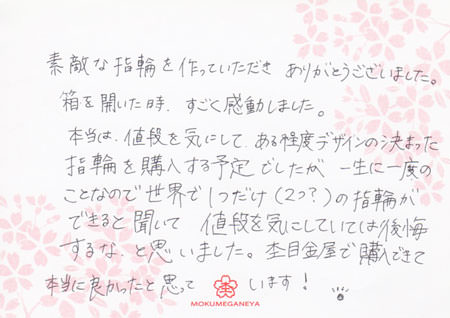 素敵な指輪を作っていただき ありがとうございました。
箱を開いた時、すごく感動しました。
本当は、値段を気にして、ある程度デザインの決まった
指輪を購入する予定でしたが 一生に一度の
ことなので世界で1つだけ(2つ?)の指輪が
できると聞いて 値段を気にしていては後悔
するな、と思いました。杢目金屋で購入できて
本当に良かったと思って います!
杢
MOKUMEGANEYA